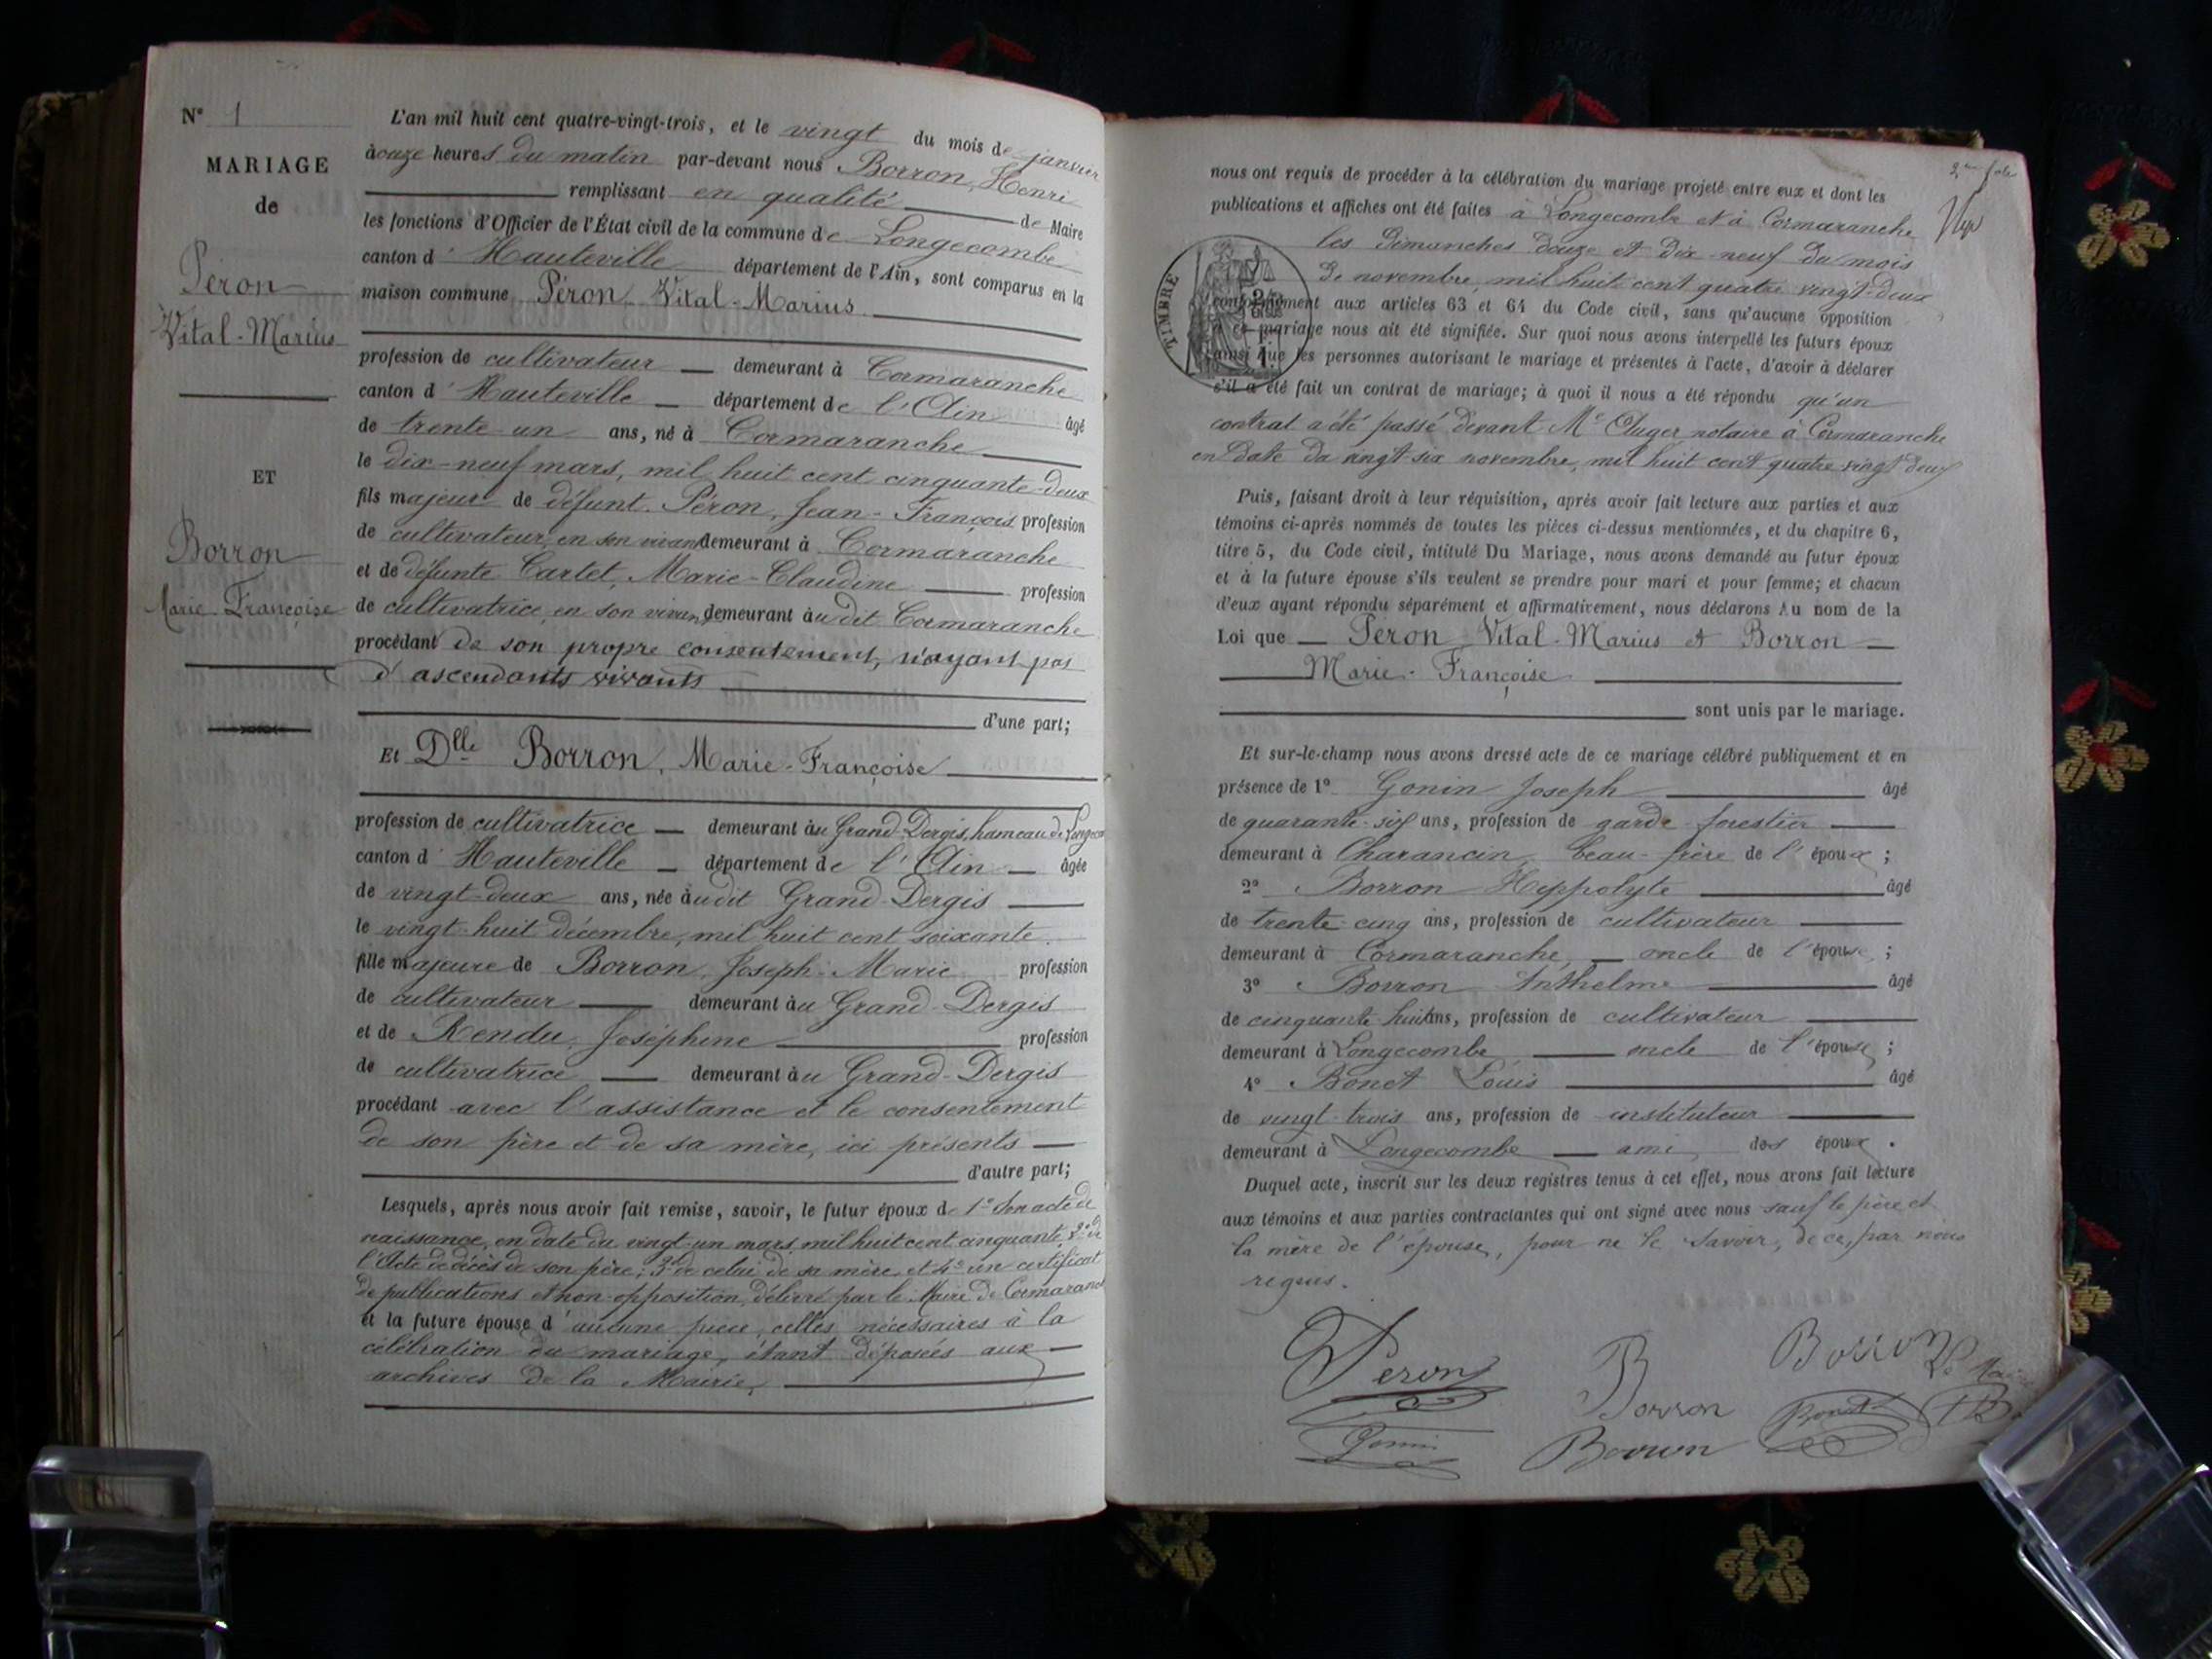 N° 1
MARIAGE
de
Péron
Vital-Marius
ET
Borron
Marie-Françoise
L'an mil huit cent quatre-vingt-trois, et le vingt du mois de janvier
à onze heures du matin par-devant nous Borron, Henri
remplissant en qualité de Maire
les fonctions d'Officier de l'État civil de la commune de Longecombe
canton d'Hauteville département de l'Ain, sont comparus en la
maison commune Péron, Vital-Marius
profession de cultivateur demeurant à Cormaranche
canton d'Hauteville département de l'Ain âgé
de trente-un ans, né à Cormaranche
le dix-neuf mars, mil huit cent cinquante-deux
fils majeur de défunt Péron, Jean-François profession
de cultivateur, en son vivant demeurant à Cormaranche
et de défunte Cartet, Marie-Claudine profession
de cultivatrice, en son vivant, demeurant audit Cormaranche
procédant de son propre consentement, n'ayant pas
d'ascendants vivants
d'une part;
Et Dlle Borron, Marie-Françoise
profession de cultivatrice demeurant au Grand-Dergis, hameau de Longeco
canton d'Hauteville département de l'Ain âgée
de vingt-deux ans, née audit Grand-Dergis
le vingt-huit décembre, mil huit cent soixante
fille majeure de Borron, Joseph-Marie profession
de cultivateur demeurant au Grand-Dergis
et de Rendu, Joséphine profession
de cultivatrice demeurant au Grand-Dergis
procédant avec l'assistance et le consentement
de son père et de sa mère, ici présents
d'autre part;
Lesquels, après nous avoir fait remise, savoir, le futur époux de 1° Son acte de
naissance, en date du vingt-un mars, mil huit cent cinquante 2° de
l'Acte de décès de son père; 3° de celui de sa mère et 4° un certificat
de publications et non-opposition, délivré par le Maire de Cormaranch
et la future épouse d'aucune pièce, celles nécessaires à la
célébration du mariage, étant déposées aux
archives de la Mairie,
nous ont requis de procéder à la célébration du mariage projeté entre eux et dont les
publications et affiches ont été faites à Longecombe et à Cormaranche
les dimanches douze et dix-neuf du mois
de novembre, mil huit cent quatre vingt-deux
TIMBRE
conformément aux articles 63 et 64 du Code civil, sans qu'aucune opposition
à ce mariage nous ait été signifiée. Sur quoi nous avons interpellé les futurs époux
ainsi que les personnes autorisant le mariage et présentes à l'acte, d'avoir à déclarer
s'il a été fait un contrat de mariage; à quoi il nous a été répondu qu'un
contrat a été passé devant Me Auger notaire à Cormaranche
en date du vingt-six novembre, mil huit cent quatre vingt deux
Puis, faisant droit à leur réquisition, après avoir fait lecture aux parties et aux
témoins ci-après nommés de toutes les pièces ci-dessus mentionnées, et du chapitre 6,
titre 5, du Code civil, intitulé Du Mariage, nous avons demandé au futur époux
et à la future épouse s'ils veulent se prendre pour mari et pour femme; et chacun
d'eux ayant répondu séparément et affirmativement, nous déclarons Au nom de la
Loi que Péron Vital-Marius et Borron
Marie-Françoise
sont unis par le mariage.
Et sur-le-champ nous avons dressé acte de ce mariage célébré publiquement et en
présence de 1° Gonin Joseph âgé
de quarante-six ans, profession de garde-forestier
demeurant à Charancin, beau-frère de l'époux;
2° Borron Hippolyte âgé
de trente-cinq ans, profession de cultivateur
demeurant à Cormaranche, oncle de l'épouse;
3° Borron Anthelme âgé
de cinquante-huit ans, profession de cultivateur
demeurant à Longecombe oncle de l'épouse;
4° Bonet Louis âgé
de vingt-trois ans, profession de instituteur
demeurant à Longecombe ami, des époux.
Duquel acte, inscrit sur les deux registres tenus à cet effet, nous avons fait lecture
aux témoins et aux parties contractantes qui ont signé avec nous sauf le père et
la mère de l'épouse, pour ne le savoir, de ce, par nous
requis.
Péron
Borron
Borron
Le Maire
Gonin
Borron
Bonet
HB